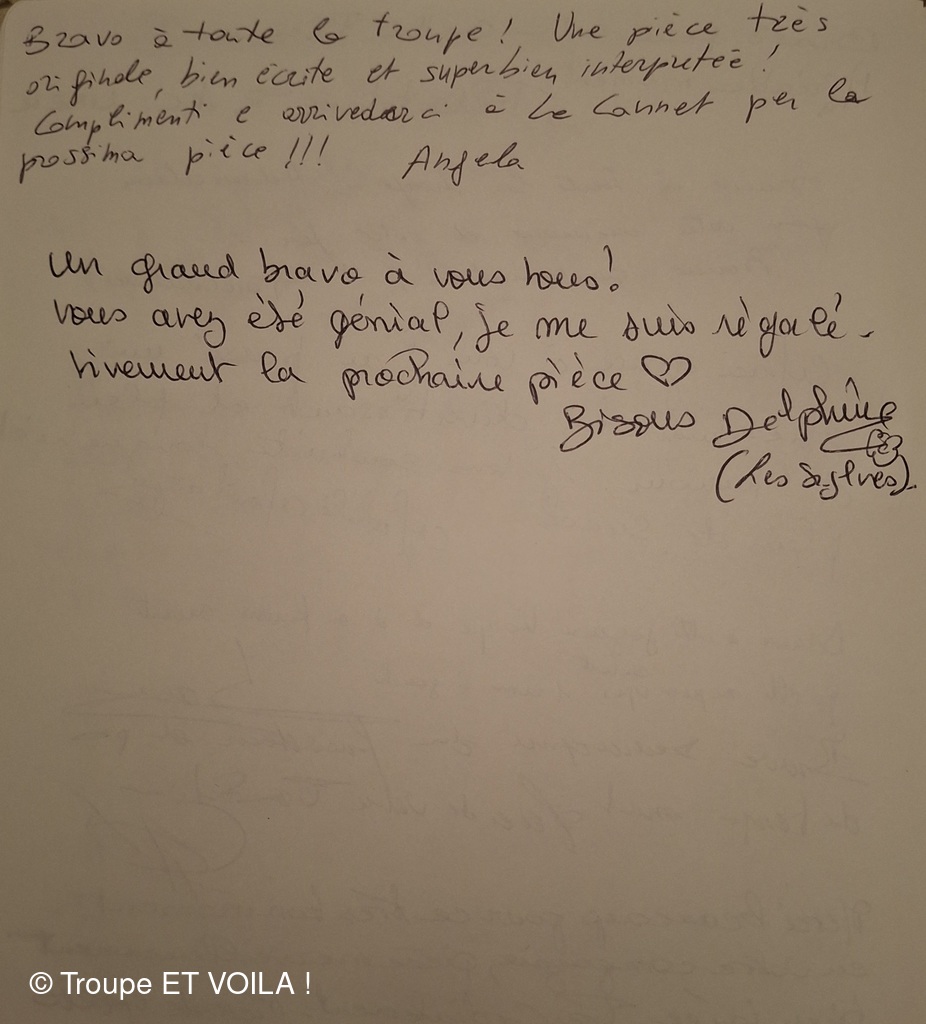 Bravo à toute la troupe ! Une pièce très
originale, bien écrite et superbien interpreteé !
Complimenti e arrivederci à Le Cannet per la
prossima pièce !!!      Angela
Un grand bravo à vous tous!
Vous avez été génial, je me suis régalé.
Vivement la prochaine pièce ♡
Bisous Delphine
(Les
© Troupe ET VOILA !